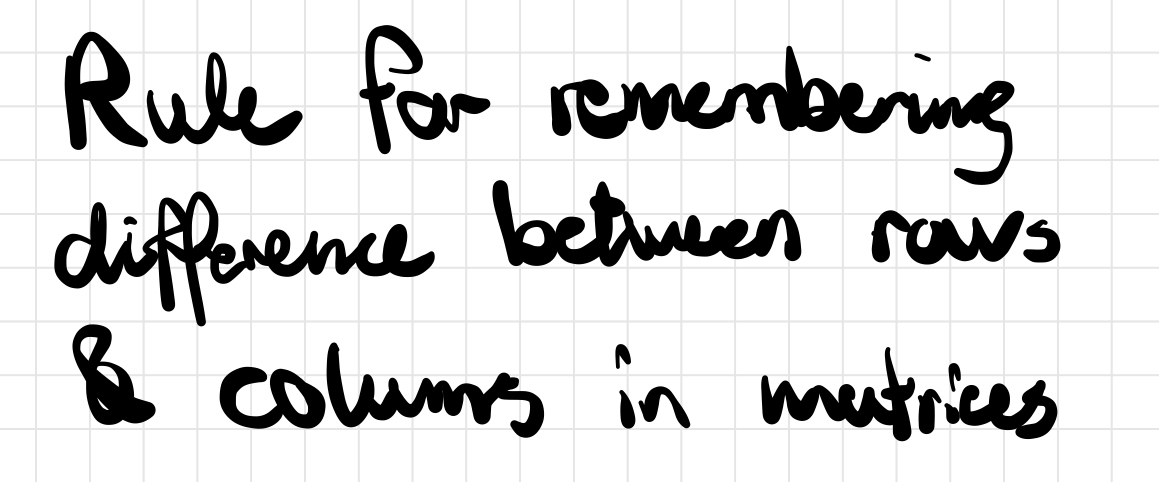 Rule for remembering
difference between rows
& columns in matrices